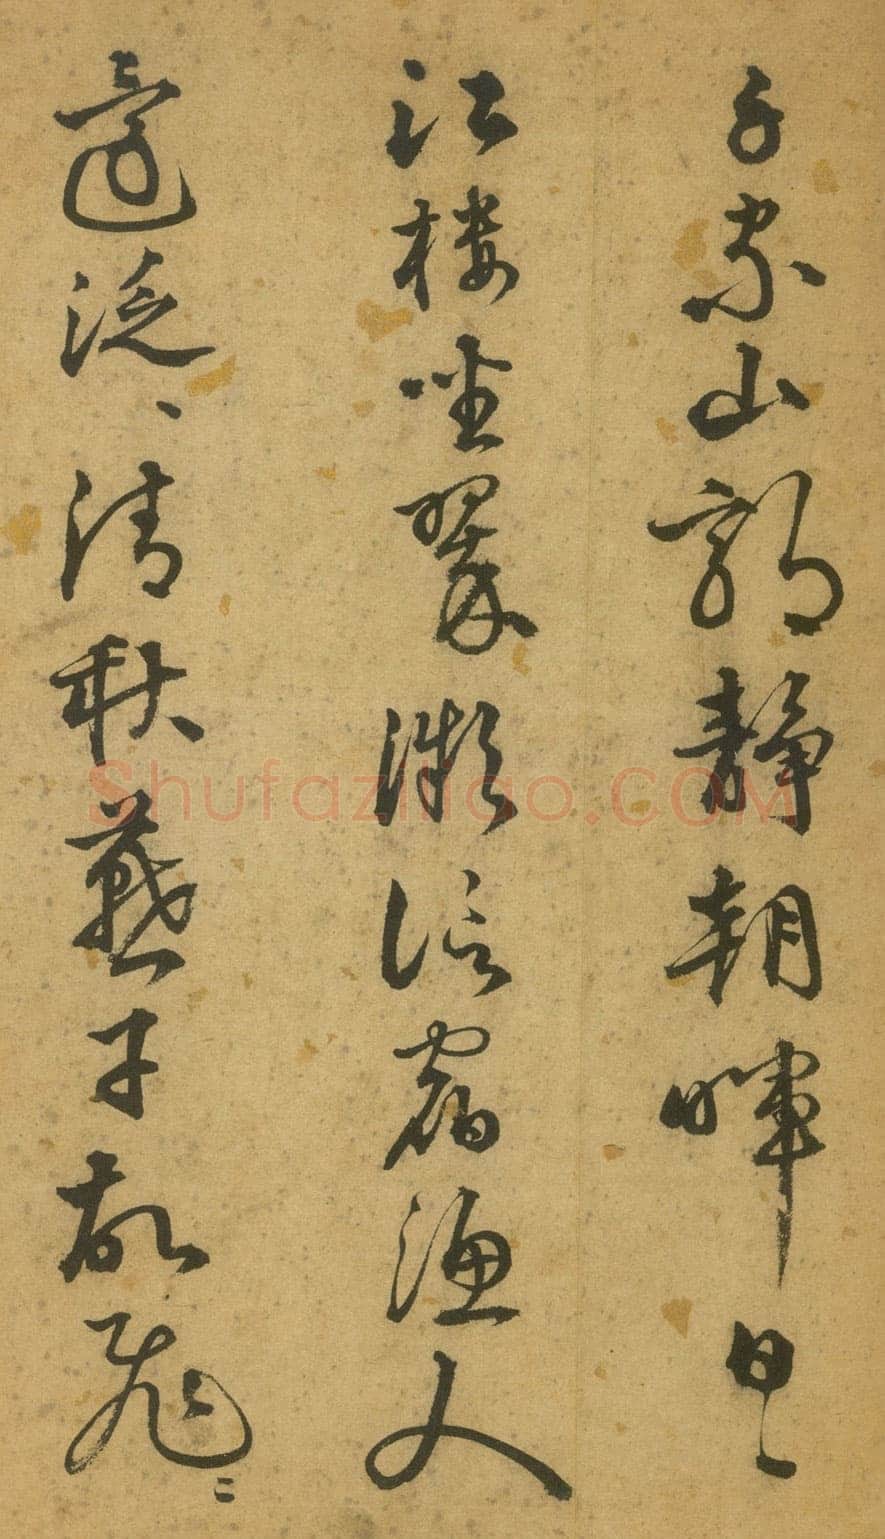 千家山郭靜朝暉日〻
江樓坐翠微信宿漁人
還泛〻清秋燕子故飛〻
Shufaziliao.COM